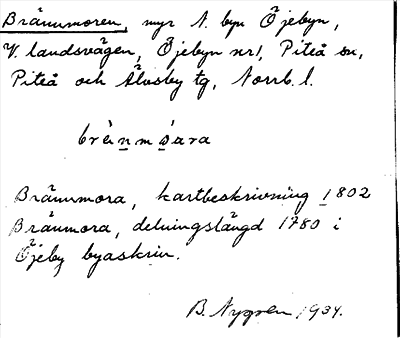 Brännmoren, myr N. byn Öjebyn,
V. landsvägen, Öjebyn nr 1, Piteå sn,
Piteå och Älvsby tg, Norrb. l.
Brännmora, kartbeskrivning 1802
Brännmora, delningslängd 1780 i
Öjeby byaskrin.
B. Nygren 1934.